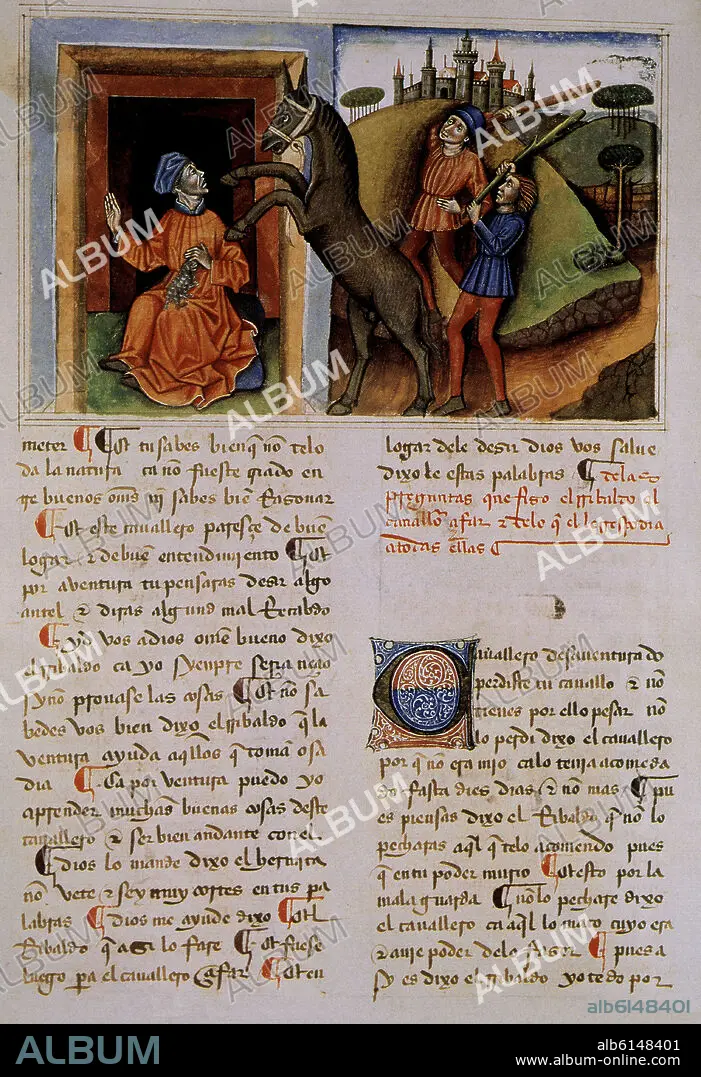 meter ¶ Et tu sabes bien q̃ nõ telo
da la natura ca nõ fueste criado en
tre buenos om̃s nj̃ sabes biẽ Razonar
¶ Et este cauallero paresçe de buẽ
logar & de buẽ entendimiento ¶ Et
por aventura tu pensaras desir algo
antel & diras algund mal Recabdo
¶ yd vos a dios om̃e bueno dixo
el rribaldo ca yo syenpre seria neçio
sy nõ prouase las cosas ¶ Et nõ sa
bedes vos bien dixo el rribaldo que la
ventura ayuda aq̃llos q̃ toman osa
dia ¶ Ca por ventura puedo yo
aprender muchas buenas cosas deste
cauallero & ser bien andante con el
¶ dios lo mande dixo el hermita
nõ vete & sey muy cortes en tus pa
labras ¶ dios me ayude dixo ¶ El
Ribaldo que asi lo fare ¶ Et fuese
luego pa el cauallero çifar ¶ Et en
logar dele desir dios vos salue
dixo le estas palabras ¶ Delas
preguntas que fiso el rribaldo al
cauallo çifar & delo que el le respõdia
a todas ellas
Cauallero desaventurado
perdiste tu cauallo & nõ
tienes por ello pesar nõ
lo perdi dixo el cauallero
por que nõ era mjo ca lo tenia acomeda
do fasta dies dias & nõ mas ¶ pu
es piensas dixo el Ribaldo que nõ lo
pecharas aql̃ que telo acomendo pues
que en tu poder murio ¶ Et esto por la
mala guarda ¶ Nõ lo pechare dixo
el cauallero ca aql̃ lo mato cuyo era
& avie poder delo faser ¶ pues a
sy es dixo el rribaldo yo te do por
ALBUM
alb6148401
ALBUM
alb6148401
www.album-online.com